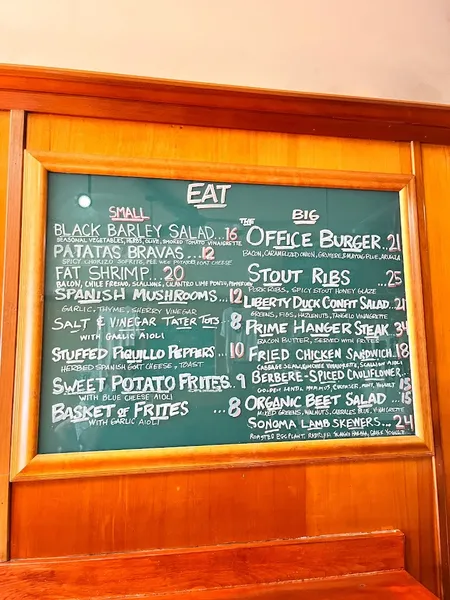 EAT
SMALL
BLACK BARLEY SALAD...16
SEASONAL VEGETABLES, HERBS, OLIVE, SMOKED TOMATO VINAIGRETTE
PATATAS BRAVAS ...12
SPICY CHORIZO SOFRITO, PEE WEE POTATOES GOAT CHEESE
FAT SHRIMP...20
BACON, CHILE FRESNO, SCALLIONS, CILANTRO LIME PONTZU, PEPPERCORN
SPANISH MUSHROOMS...12
GARLIC, THYME, SHERRY VINEGAR
SALT & VINEGAR TATER TOTS 8
WITH GARLIC AIOLI
STUFFED PIQUILLO PEPPERS...10
HERBED SPANISH GOAT CHEESE, TOAST
SWEET POTATO FRITES.. 9
WITH BLUE CHEESE AIOLI
BASKET OF FRITES ...8
WITH GARLIC AIOLI
BIG
THE OFFICE BURGER..21
BACON, CARAMELIZED ONION, GRUYERE, MAYTAG BLUE, ARUGULA
STOUT RIBS ...25
PORK RIBS, SPICY STOUT HONEY GLAZE
LIBERTY DUCK CONFIT SALAD..21
GREENS, FIGS, HAZELNUTS, TANGELO VINAIGRETTE
PRIME HANGER STEAK
BACON BUTTER, SERVED WITH FRITES
FRIED CHICKEN SANDWICH..18
CABBAGE SLAW, VINAIGRETTE, SCALLION AIOLI
BERBERE-SPICED CAULIFLOWER..
15
GOLDEN LENTIL CUCUMBER, MINT, YOGURT
ORGANIC BEET SALAD ...15
MIXED GREENS, WALNUTS, CABRALES BLUE, VINAIGRETTE
SONOMA LAMB SKEWERS...24
ROASTED EGGPLANT, GARLIC YOGURT